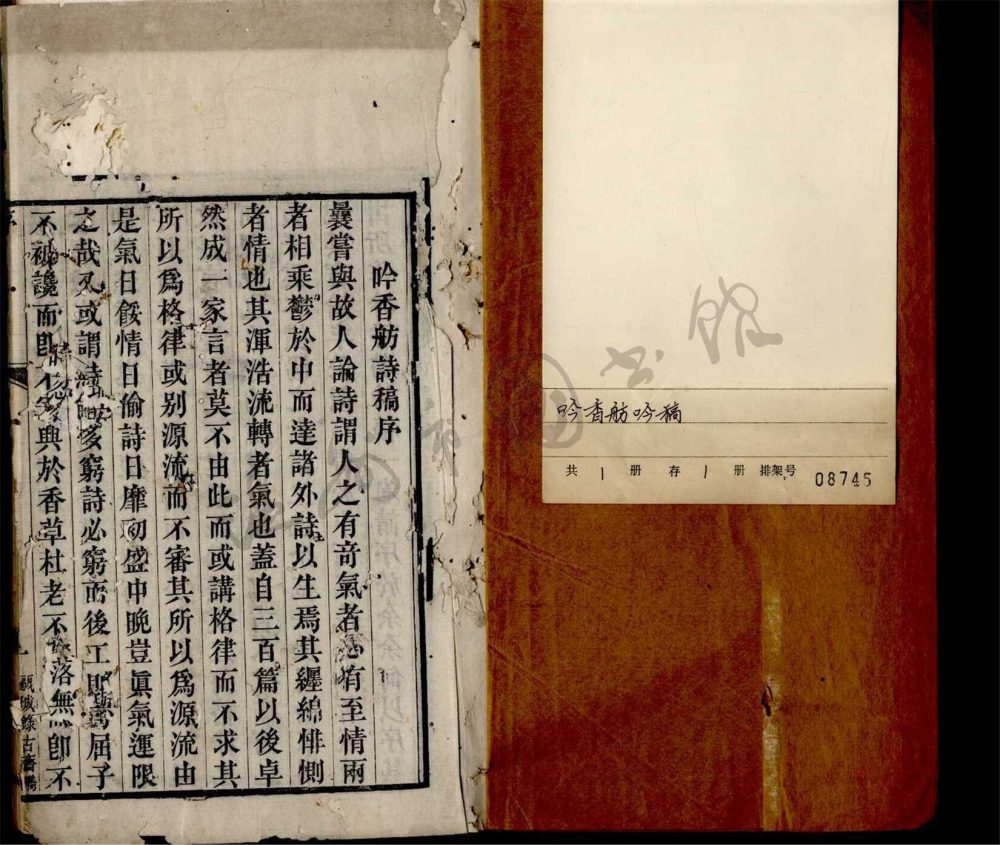 吟香舫吟稿
共 1 册 存 1 册 排架号 08745
吟香舫詩稿序
曩嘗與故人論詩謂人之有奇氣者必有至情兩
者相乘鬱於中而達諸外詩以生焉其纒綿悱惻
者情也其渾浩流轉者氣也蓋自三百篇以後卓
然成一家言者莫不由此而或講格律而不求其
所以爲格律或别源流而不審其所以爲源流由
是氣日餒情日偷詩日靡初盛中晚豈眞氣運限
之哉又或謂詩能多窮詩必窮而後工則屈子
不被讒而卽不興於香草杜老不落無卽不
古
書館